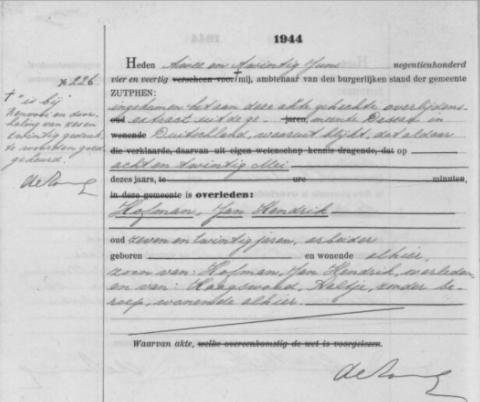 1944
Heden twee en twintig Juni negentienhonderd
vier en veertig verscheen voor mij, ambtenaar van den burgerlijken stand der gemeente
ZUTPHEN:
ingekomen het aan deze akte gehechte overlijdens
oud extract uit de ge- jaren, meente Dessau in
wonende Duitschland, waaruit blijkt, dat aldaar
die verklaarde, daarvan uit eigen wetenschap kennis dragende, dat op
acht en twintig Mei
dezes jaars, te ure minuten,
in deze gemeente is overleden:
Hofman, Jan Hendrik
oud zeven en twintig jaren, arbeider
geboren en wonende alhier,
zoon van: Hofman, Jan Hendrik, overleden
en van: Haagswold, Aaltje, zonder be-
roep, wonende alhier.
Waarvan akte, welke overeenkomstig de wet is voorgelezen.
No 226
"is bij
renvooi en door-
haling van zeven
en twintig gedrukte
woorden goed-
gekeurd.